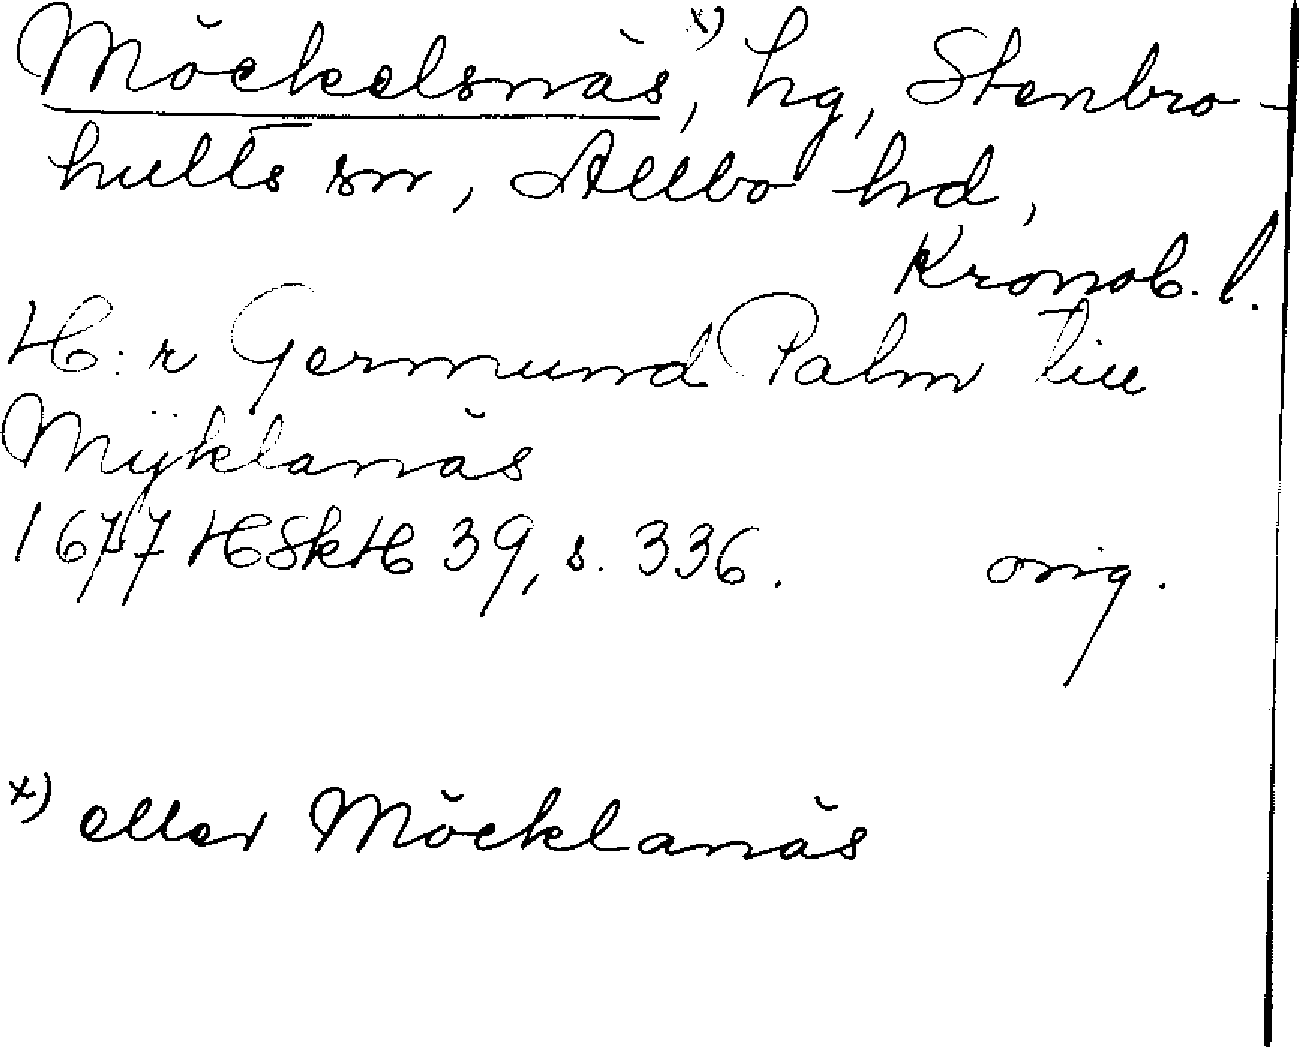 Möckelsnäs,ˣ⁾ hg, Stenbro-
hults sn, Allbo hd,
Kronob. l.
H:r Germund Palm till
Mÿklanäs
1677 HSkH 39, s. 336. orig.
x) eller Möcklanäs